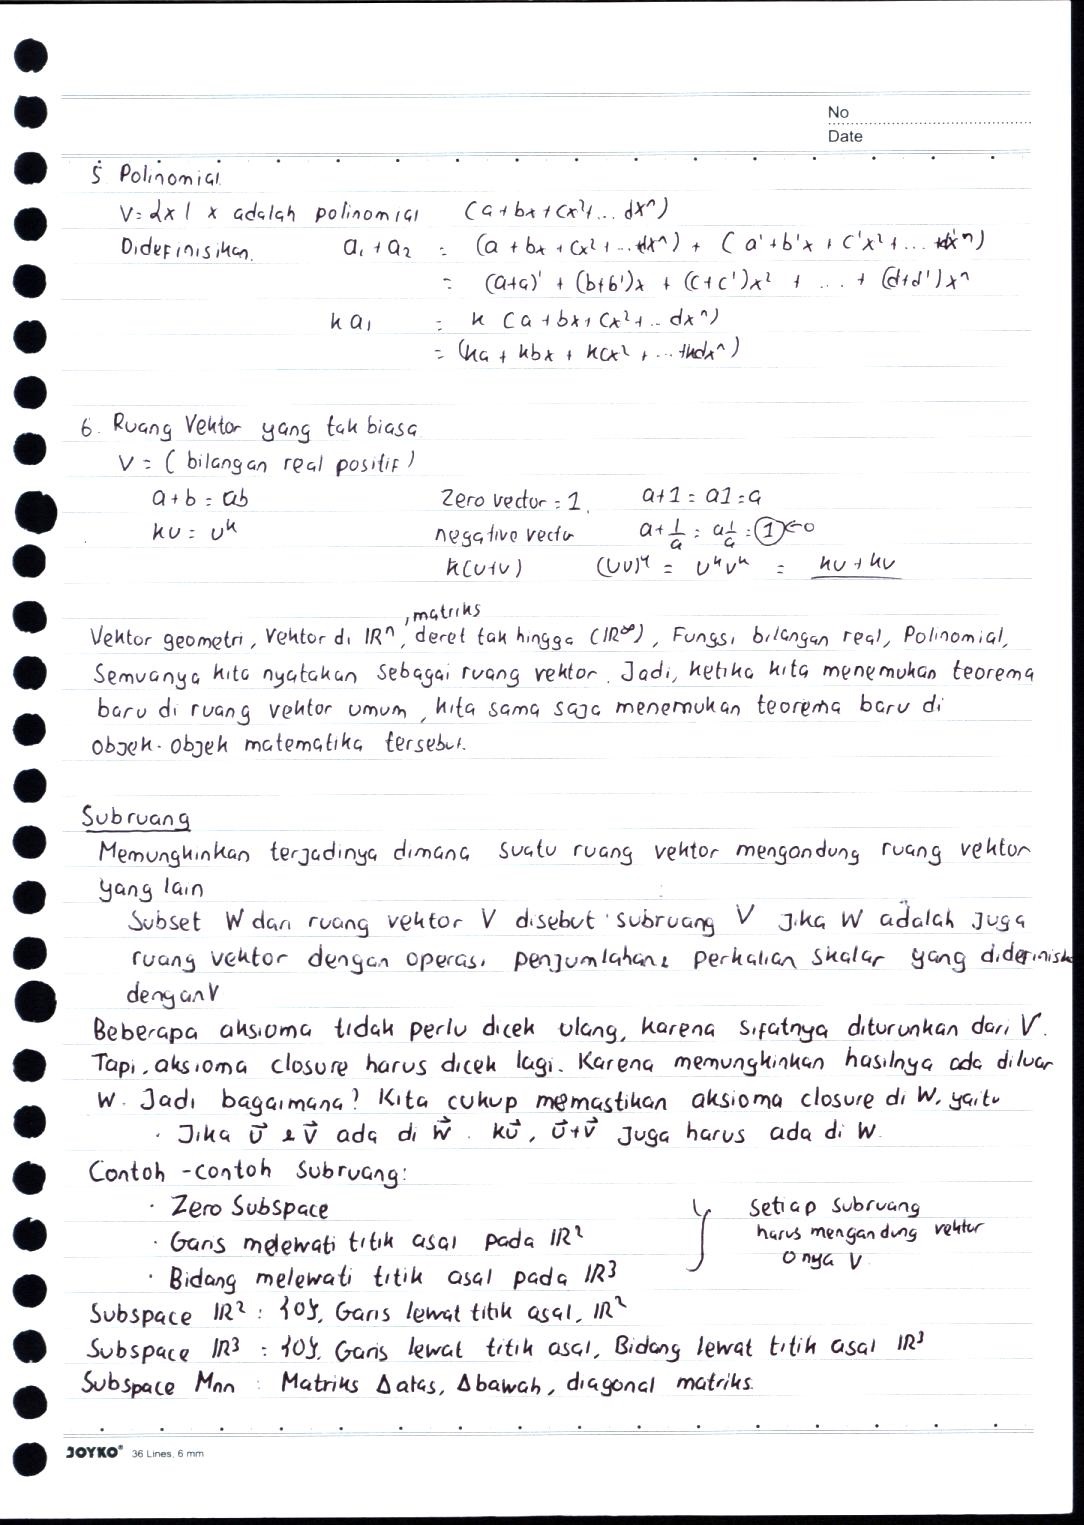 No
Date
5 Polinomial
V = {x | x adalah polinomial (a+bx+cx²+... dxⁿ)
Didefinisikan. a₁ + a₂ = (a + bx + cx² + ... +dxⁿ) + (a' + b'x + c'x² + ... +d'xⁿ)
= (a+a)' + (b+b')x + (c+c')x² + ... + (d+d')xⁿ
k a₁ = k (a + bx + cx² + .. dxⁿ)
= (ka + kbx + kcx² + ... +kdxⁿ)
6. Ruang Vektor yang tak biasa
V = ( bilangan real positif )
a + b = ab Zero vector = 1. a+1 = a1 = a
ku = uᵏ negative vector a + 1/a = a 1/a = 1 ← 0
k(u+v) (uv)ᵏ = uᵏvᵏ = ku + kv
, matriks
Vektor geometri, vektor di IRⁿ, deret tak hingga (IR∞), Fungsi bilangan real, Polinomial,
Semuanya kita nyatakan sebagai ruang vektor. Jadi, ketika kita menemukan teorema
baru di ruang vektor umum, kita sama saja menemukan teorema baru di
objek-objek matematika tersebut.
Subruang
Memungkinkan terjadinya dimana suatu ruang vektor mengandung ruang vektor
yang lain
Subset W dari ruang vektor V disebut subruang V jika W adalah juga
ruang vektor dengan operasi penjumlahan & perkalian skalar yang didefinisik
dengan V
Beberapa aksioma tidak perlu dicek ulang, karena sifatnya diturunkan dari V.
Tapi, aksioma closure harus dicek lagi. Karena memungkinkan hasilnya ada diluar
W. Jadi bagaimana? Kita cukup memastikan aksioma closure di W, yaitu
· Jika u⃗ & v⃗ ada di w⃗. ku⃗, u⃗+v⃗ juga harus ada di W.
Contoh-contoh Subruang:
· Zero Subspace
· Garis melewati titik asal pada IR²
· Bidang melewati titik asal pada IR³
setiap subruang
harus mengandung vektor
0 nya V
Subspace IR² : {0}, Garis lewat titik asal, IR²
Subspace IR³ : {0}, Garis lewat titik asal, Bidang lewat titik asal IR³
Subspace Mnn : Matriks Δ atas, Δ bawah, diagonal matriks.
JOYKO® 36 Lines, 6 mm